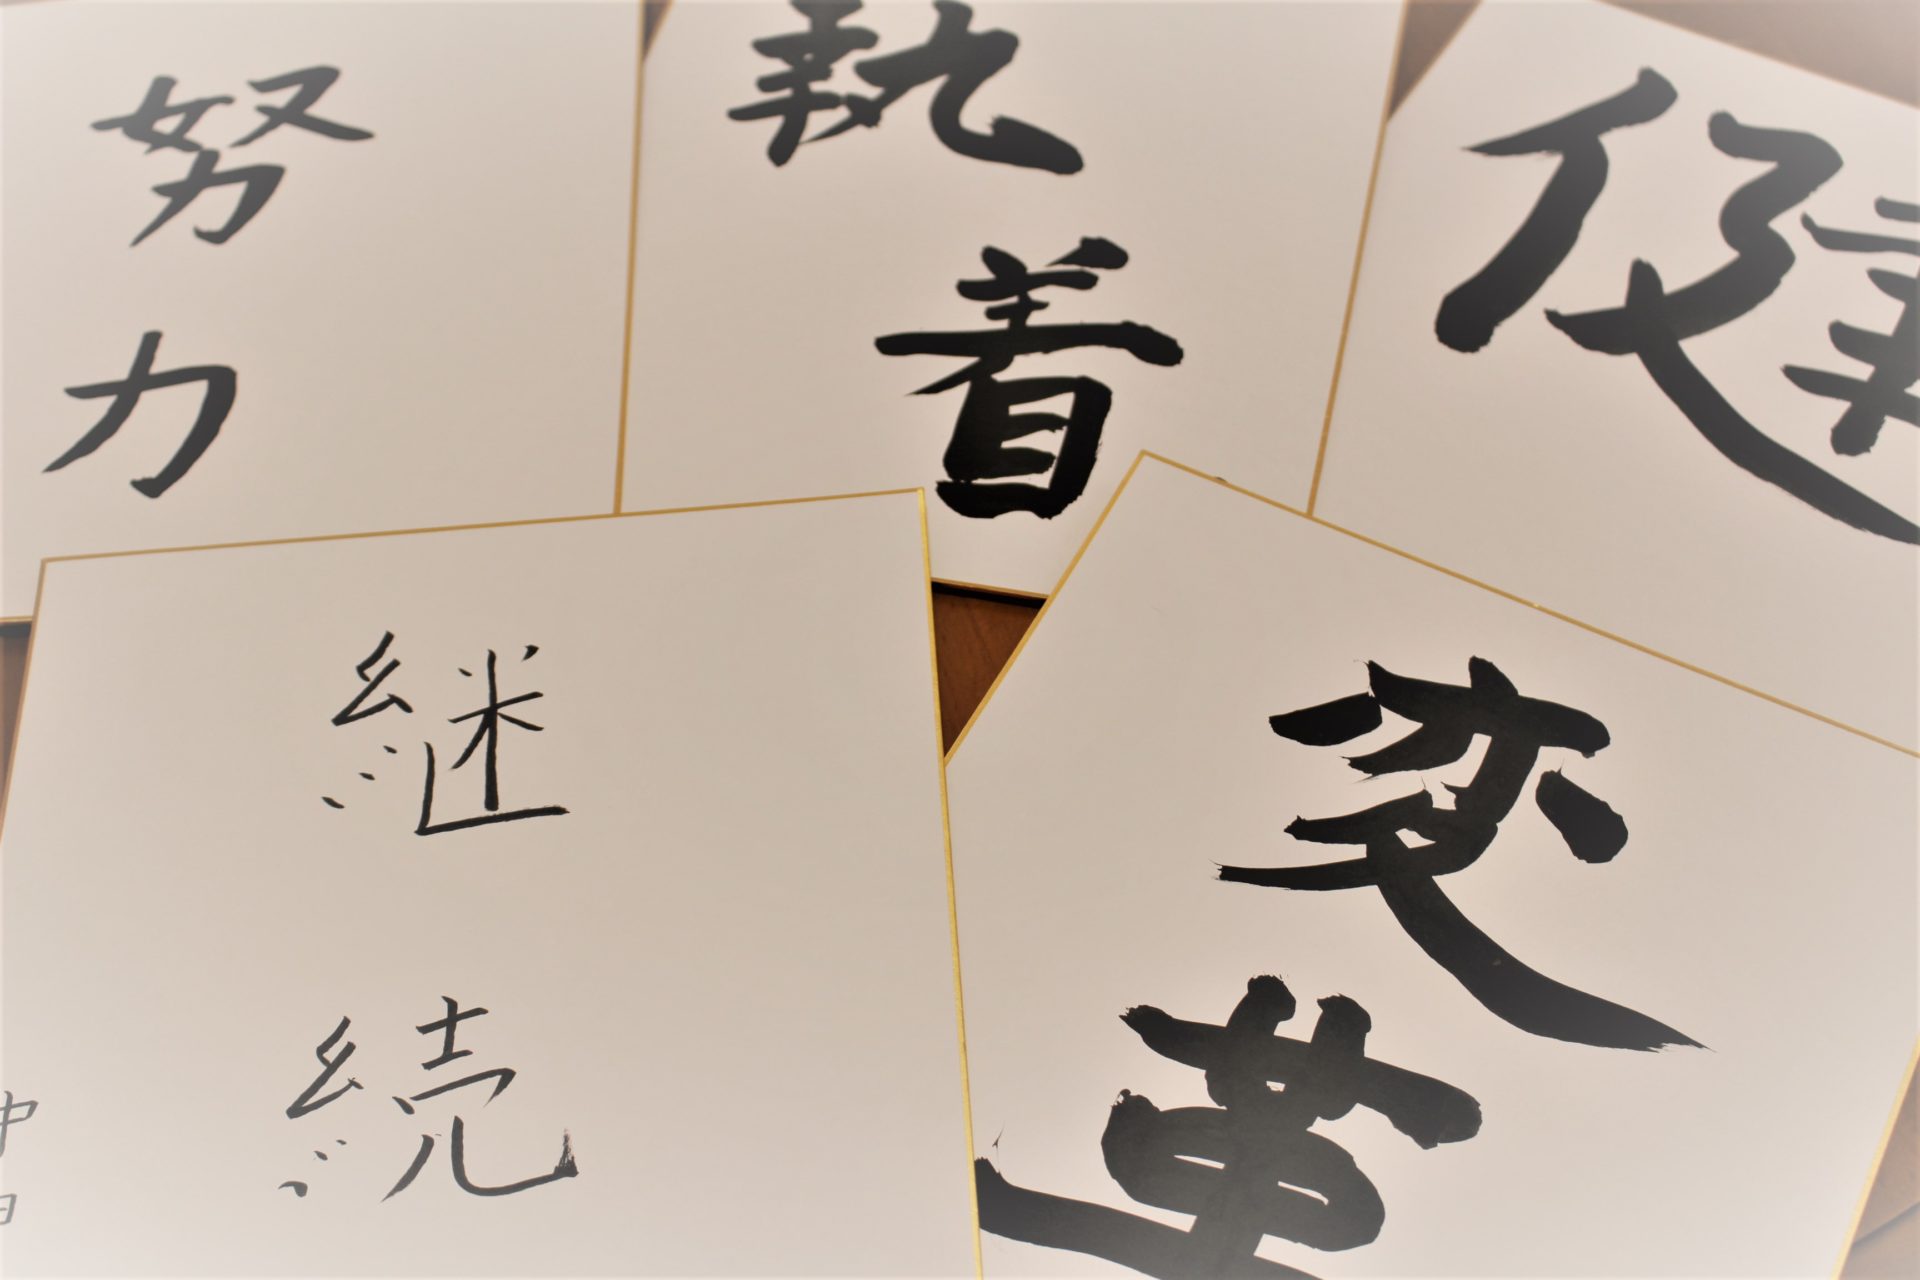 努力
執着
健
継続
変革